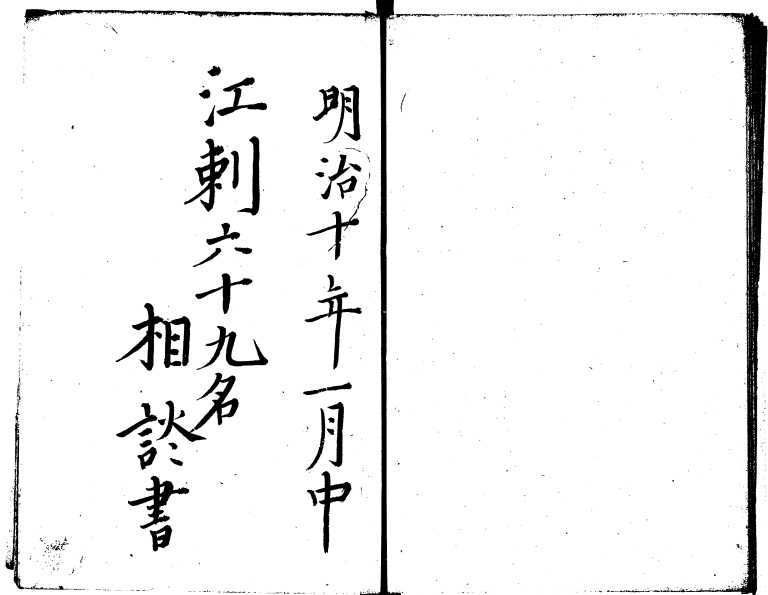 明治十年一月中
江刺六十九名
相談書